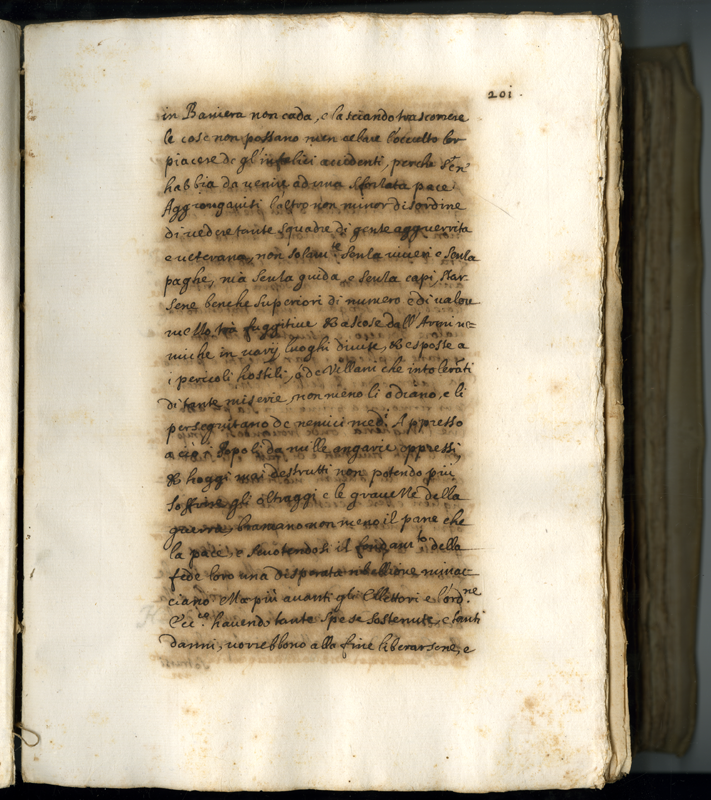 201.
in Baviera non cada, e lasciando trascorrere
le cose non possano men celare l'occulto lor
piacere de gl'infelici accidenti, perche
habbia da venire ad una sforzata pace.
Aggiongavisi l'altro non minor disordine
di vedere tante squadre di gente agguerrita
e veterana, non solam.te senza viveri e senza
paghe, mà senza guida, e senza capi, star-
sene benche superiori di numero e di valore
mezzo trà fuggitive & ascose dall'Armi ne-
miche in varij luoghi divise, & esposte a
i pericoli hostili, a de Villani che intolerãti
di tante miserie, non meno li odiano, e li
perseguitano de nemici med.i Appresso
a ciò i Popoli da mille angarie oppressi,
& hoggi mai destrutti non potendo più
soffrire gli oltraggi e le gravezze della
guerra, bramano non meno il pane che
la pace, e scuotendosi il fondam.to della
fede loro una disperata ribellione minac-
ciano. Mà più avanti gli Elettori e l'ord.ne
Ecc.co havendo tante spese sostenute, e tanti
danni, vorrebbono alla fine liberarsene, e